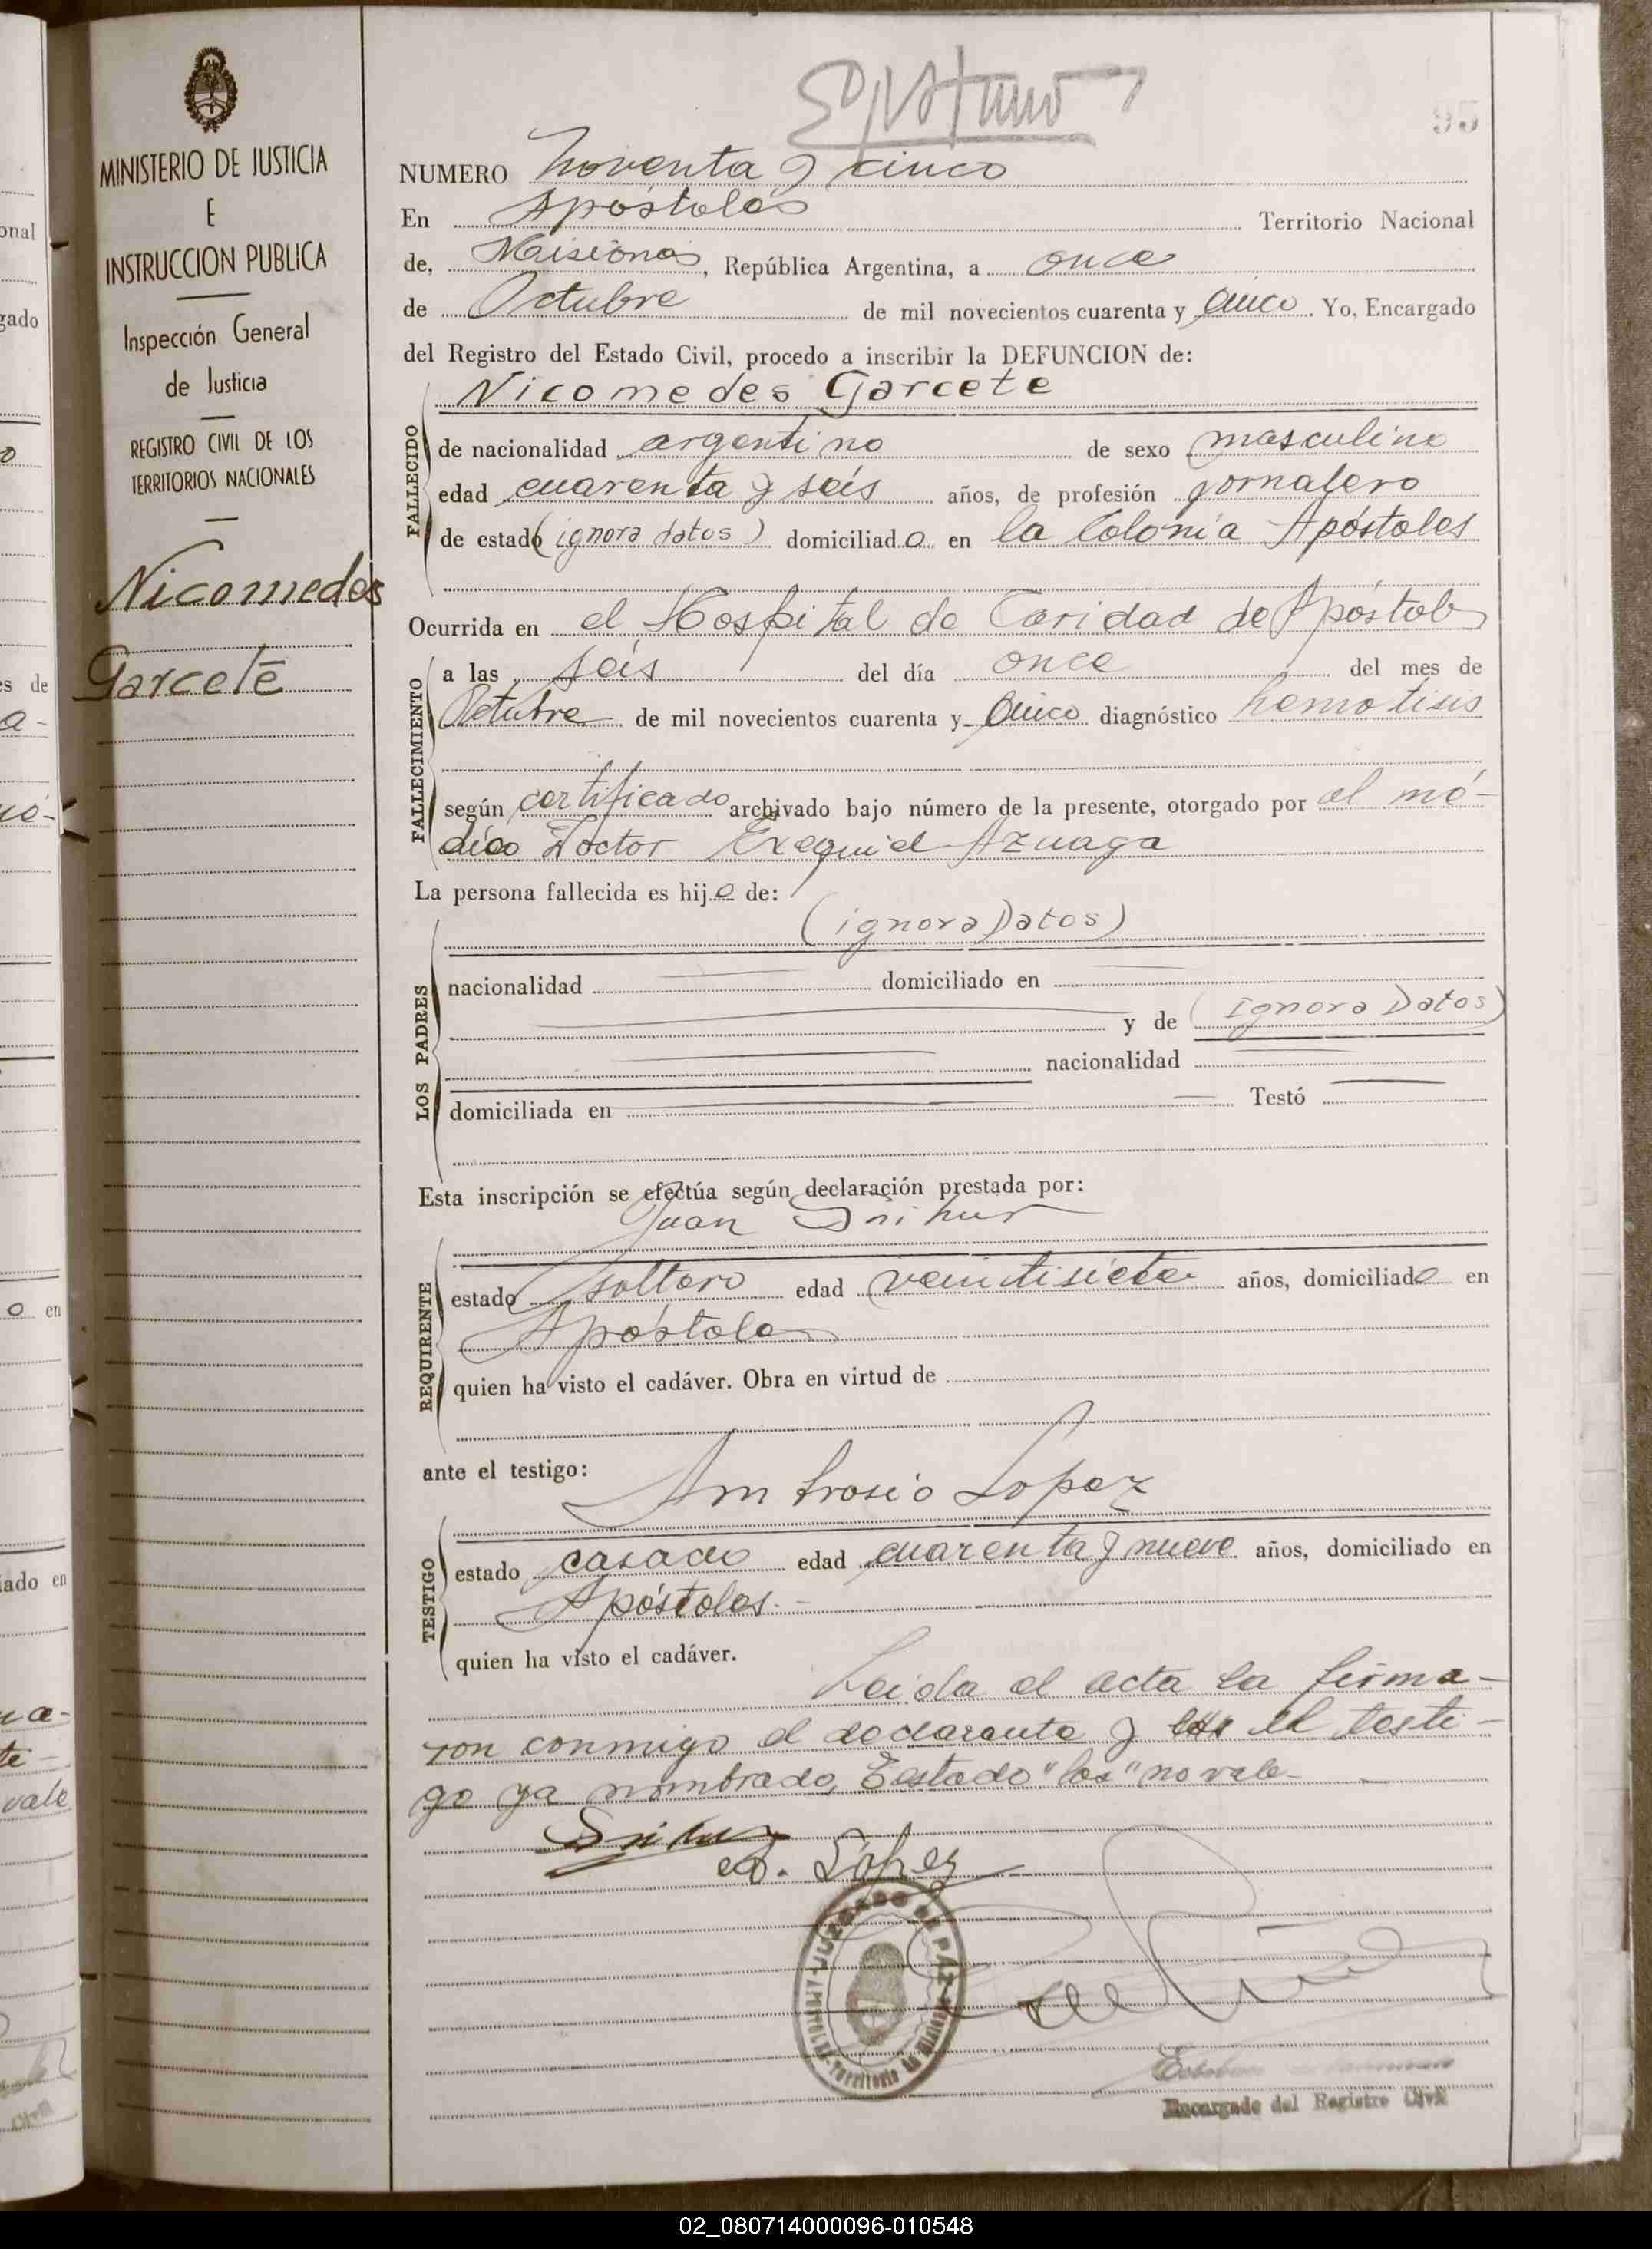 95
MINISTERIO DE JUSTICIA
E
INSTRUCCION PUBLICA
Inspección General
de Justicia
REGISTRO CIVIL DE LOS
TERRITORIOS NACIONALES
Nicomedes
Garcete
NUMERO Noventa y cinco
En Apóstoles Territorio Nacional
de, Misiones, República Argentina, a once
de Octubre de mil novecientos cuarenta y cinco. Yo, Encargado
del Registro del Estado Civil, procedo a inscribir la DEFUNCION de:
Nicomedes Garcete
FALLECIDO
de nacionalidad argentino de sexo masculino
edad cuarenta y seis años, de profesión jornalero
de estado (ignora datos) domiciliado en la Colonia Apóstoles
Ocurrida en el Hospital de Caridad de Apóstoles
FALLECIMIENTO
a las seis del día once del mes de
Octubre de mil novecientos cuarenta y cinco diagnóstico hemotisis
según certificado archivado bajo número de la presente, otorgado por el mé-
dico Doctor Exequiel Azuaga
La persona fallecida es hijo de:
LOS PADRES
(ignora Datos)
nacionalidad domiciliado en
y de (Ignora Datos)
nacionalidad
domiciliada en Testó
Esta inscripción se efectúa según declaración prestada por:
Juan
REQUIRENTE
estado soltero edad veintisiete años, domiciliado en
Apóstoles
quien ha visto el cadáver. Obra en virtud de
ante el testigo:
Ambrosio Lopez
TESTIGO
estado casado edad cuarenta y nueve años, domiciliado en
Apóstoles.-
quien ha visto el cadáver.
Leida el acta la firma-
ron conmigo el declarante y los el testi-
go ya nombrado, Testado "los" no vale-
A. López
JUZGADO DE PAZ
Encargado del Registro Civil
02_080714000096-010548